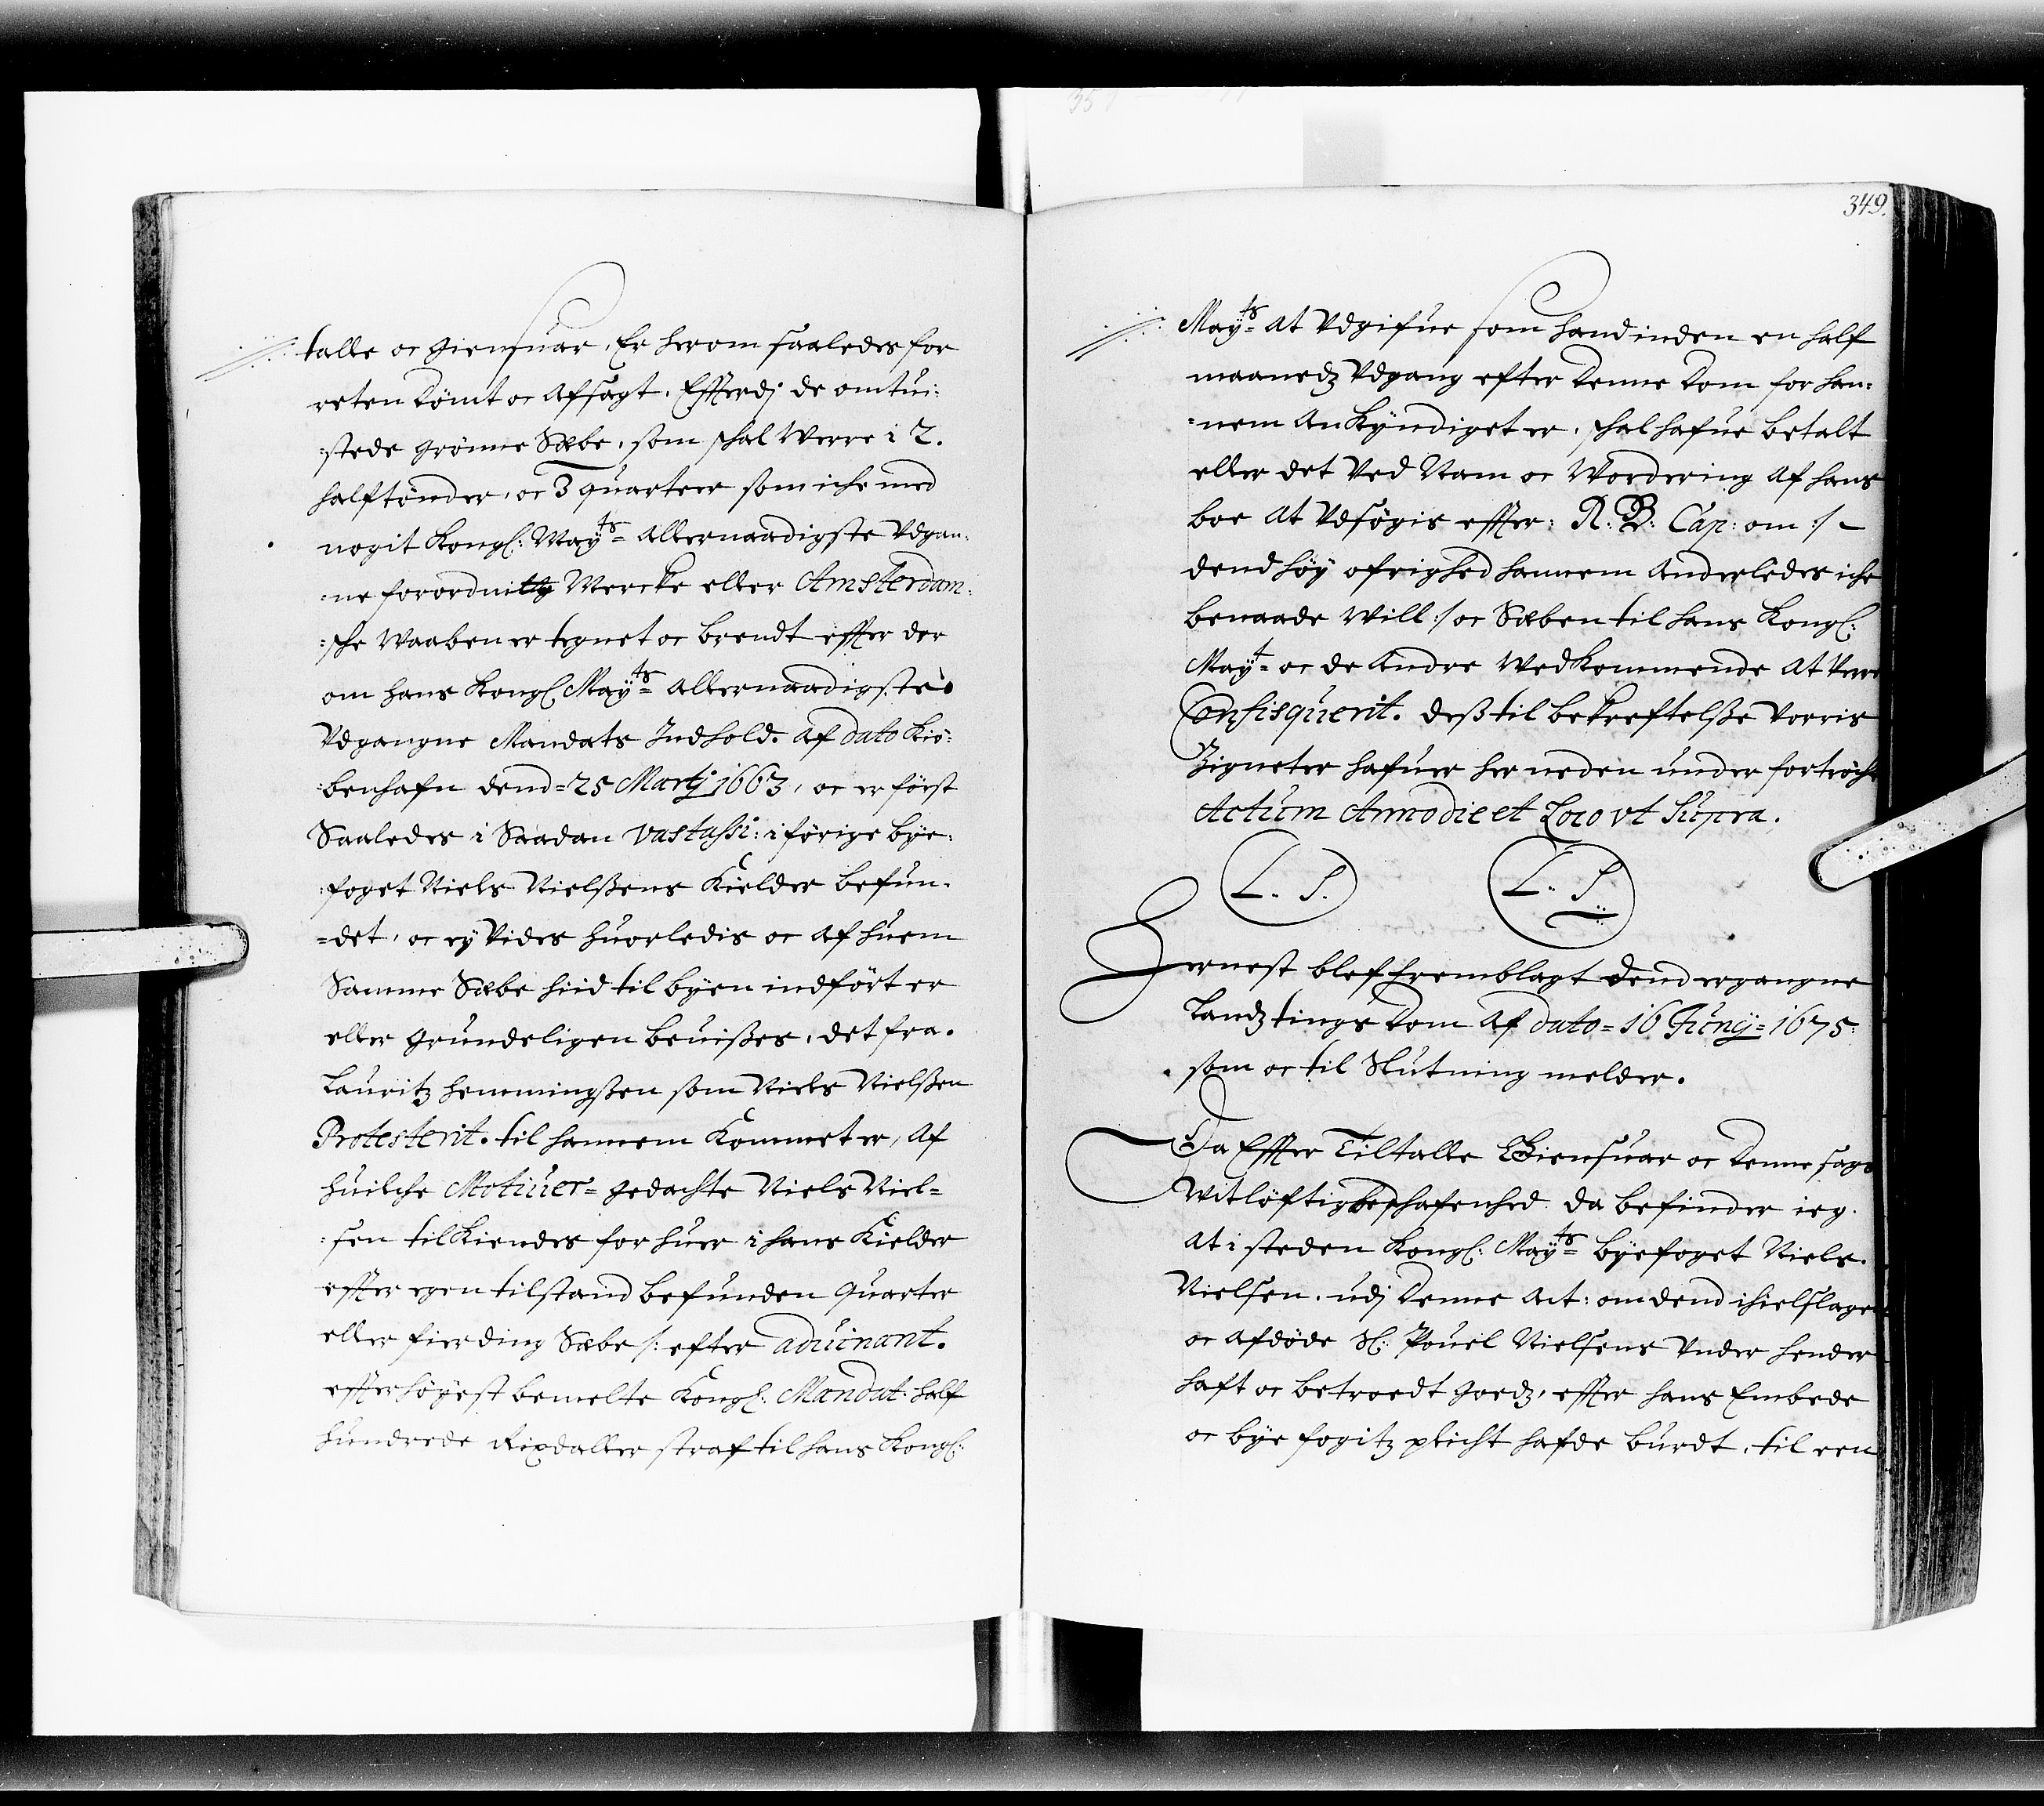 talle oc giensuar, Er herom saaledes for
reten dömt oc afsagt. Effterdj de omtui-
-stede grönne Sæbe, som schal Werre i 2.
halftönder, oc 3 quarteer som iche med
nogit Kongl: Mayts: allernaadigste Vdgan-
-ne forordnitg Mercke eller Amsterdam-
-sche Waaben er tegnet oc brendt effter der
om hans Kongl Mayts: allernaadigste
Vdgangne Mandats Indhold. af dato Kiö-
benhafn dend=25 Martj 1663, oc er först
Saaledes i Saadan Vastassi: i förige bye-
foget Niels Nielßens Kielder befun-
=det, oc ey Vides huorledis oc af huem
Samme Sæbe hiid til byen indfört er
eller grundeligen beuißes, det fra.
Lauritz Hemmingßen som Niels Nielßen
Protesterit. til hannem Kommet er, af
huilche Motiuer= gedachte Niels Niel=
-sen tilkiendes for huer i hans Kielder
effter egen tilstand befunden quarter
eller fierding Sæbe /: efter aduenant.
effter högest bemelte Kongl: Mandat: half
hundrede Rixdaller straf til hans Kongl:
349.
Mayts: at Vdgifue som hand inden en half
maanedz Vdgang efter denne dom for han-
-nem ankyndiget er, schal hafue betalt
eller det Ved Nam oc Wordering af hans
boe at Vdsögis effter: R: B: Cap: om :/
dend höy öfrighed hannem anderledes iche
benaade Will :/ oc Sæben til hans Kongl:
Mayt: oc de andre Wedkommende at Verre
Confisquerit. deß til bekreftelße Vorris
Zigneter hafuer her neden under fortröcht
Actum Anno die et Loco vt Supra.
L. S. L. S.
Dernest blef fremblagt dend ergangne
Landztings dom af dato= 16 Juny= 1675:
som oc til Slutning melder.
Da Effter Tiltalle Giensuar oc denne sags
Witlöftig beschafenhed da befinder ieg.
at i steden Kongl: Mayts: byefoget Niels
Nielsen. udj denne act: om dend ihielslagen
oc afdöde Sl: Pouel Nielsens Vnder hender
haft oc betroedt goedz, effter hans Embede
oc bye fogitz plicht hafde burdt, til een